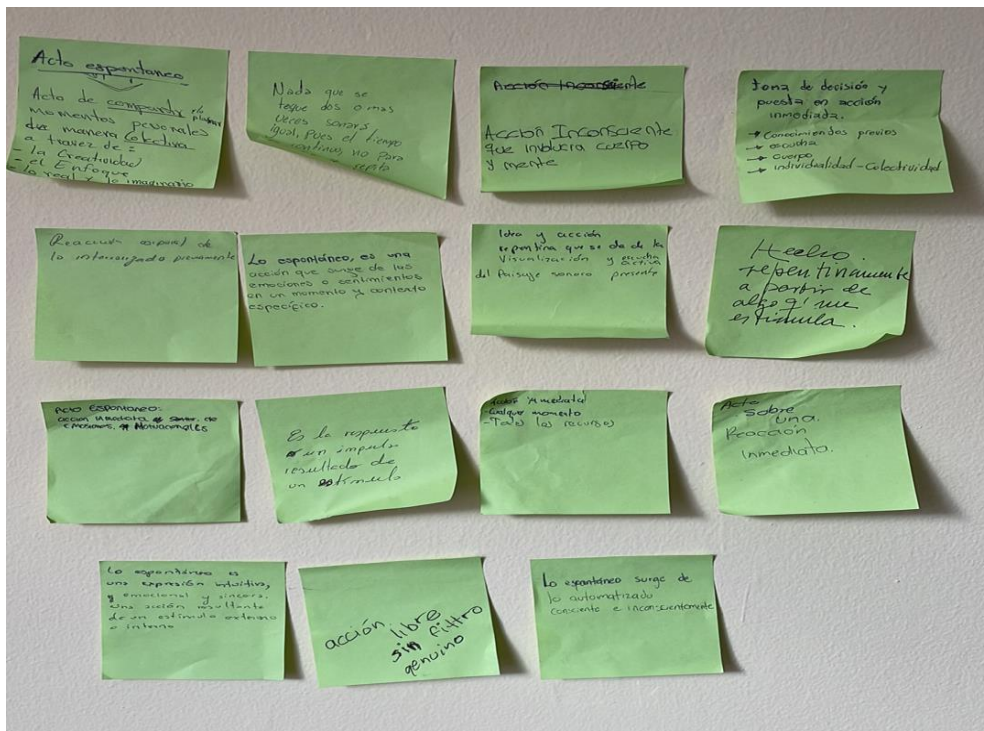 Acto espontaneo
Acto de compartir y/o plasmar
momentos personales
de manera colectiva
a travez de =
- la Creatividad
- el Enfoque
lo real y lo imaginario
Nada que se
toque dos o mas
veces sonará
igual, pues el tiempo
continuo, no para
Acción Inconsciente
que involucra cuerpo
y mente
Toma de decisión y
puesta en acción
inmediata.
→ Conocimientos previos
→ escucha
→ cuerpo
→ individualidad - Colectividad
Reacción corporal de
lo interiorizado previamente
Lo espontáneo, es una
acción que surge de las
emociones o sentimientos
en un momento y contexto
específico.
Idea y acción
repentina que se da de la
Visualización y escucha activa
del Paisaje sonoro presente
Hecho
repentinamente
a partir de
algo q' me
estimula.
Acto Espontaneo:
inmediata
emociones, # Motivacionales
Es la respuesta
a un impulso
resultado de
un estímulo
inmediata
-Cualquier momento
-Todos los recursos
Acto
sobre
una.
Reacción
inmediata.
Lo espontáneo es
una expresión intuitiva,
y emocional y sincera.
una acción resultante
de un estímulo externo
o interno
acción libre
sin filtro
genuino
Lo espontáneo surge de
lo automatizado
consciente e inconscientemente